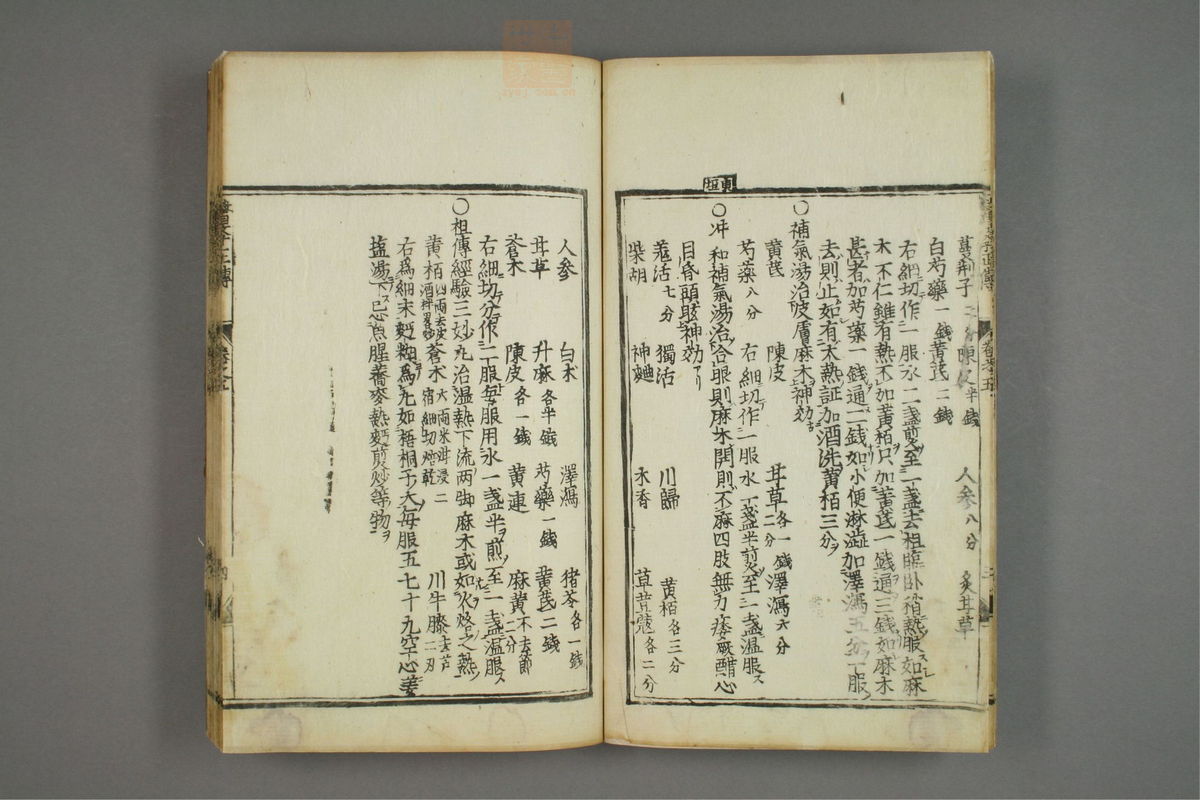 蔓荊子 二分 陳皮 半錢 人參 八分 炙甘草
白芍藥 一錢 黃芪 二錢
右細切作一服水二盞煎至一盞去粗臨卧稍熱服如麻
木不仁雖有熱不加黃栢只加黃芪一錢通三錢如麻木
甚者加芍藥一錢通二錢如小便淋澁加澤瀉五分一服
去則止如有大熱証加酒洗黃栢三分
○補氣湯治皮膚麻木神効
黃芪 陳皮 甘草 各一錢 澤瀉 六分
芍藥 八分 右細切作一服水一盞半煎至一盞温服
東垣
○冲和補氣湯治合眼則麻木開則不麻四肢無力痿厥醋心
目昏頭眩神効
羗活 七分 獨活 川歸 黃栢 各三分
柴胡 神麯 木香 草荳蔻 各二分
人參 白朮 澤瀉 猪苓 各一錢
甘草 升麻 各半錢 芍藥 一錢 黃芪 二錢
蒼朮 陳皮 各一錢 黃連 麻黃 不去節二分
右細切分作二服每服用水一盞半煎至一盞温服
○祖傳經驗三妙丸治温熱下流両脚麻木或如火烙之熱
黃栢 四両去皮酒拌畧炒 蒼朮 六両米泔浸二宿細切焙乾 川牛膝 去芦二刄
右為細末麪糊為丸如梧桐子大每服五七十九空心姜
塩湯下忌魚腥蕎麥熱麪煎炒等物